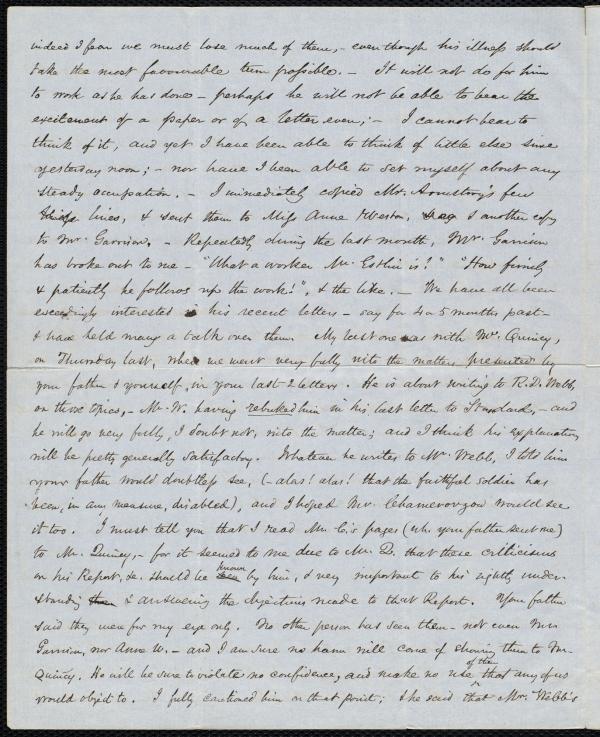 indeed I fear we must lose much of them, - even though his illness should
take the most favourable turn possible. - It will not do for him
to work as he has done - perhaps he will not be able to bear the
excitement of a paper or of a letter even; - I cannot bear to
think of it, and yet I have been able to think of little else since
yesterday noon; - nor have I been able to set myself about any
steady occupation. - I immediately copied Mr. Armstrong's few
lines, & sent them to Miss Anne Weston, & another copy
to Mr. Garrison. - Repeatedly during the last month, Mr. Garrison
has broke out to me - "What a worker Mr. Estlin is!" "How finely
& patiently he follows up the work!", & the like. - We have all been
exceedingly interested in his recent letters - say for 4 or 5 months past -
& have held many a talk over them. My last one was with Mr. Quincy,
on Thursday last, when we went very fully into the matters presented by
your father & yourself, in your last 2 letters. He is about writing to R.D. Webb,
on these topics, - Mr. W. having rebuked him in his last letter to Standard, - and
he will go very fully, I doubt not, into the matter; and I think his explanations
will be pretty generally satisfactory. Whatever he writes to Mr. Webb, I told him
your father would doubtless see, (- alas! alas! that the faithful soldier has
been, in any measure, disabled), and I hoped Mr. Chamerovzow would see
it too. I must tell you that I read Mr. C.'s pages (wh. your father sent me)
to Mr. Quincy, - for it seemed to me due to Mr. Q. that these criticisms
on his Report, &c. should be known by him, & very important to his rightly under-
standing & answering the objections made to that Report. Your father
said they were for my eye only. No other person has seen them - not even Mr.
Garrison, nor Anne W. - and I am sure no harm will come of showing them to Mr.
Quincy. He will be sure to violate no confidence, and make no use of them that any of us
would object to. I fully cautioned him on that point; & he said that Mr. Webb's